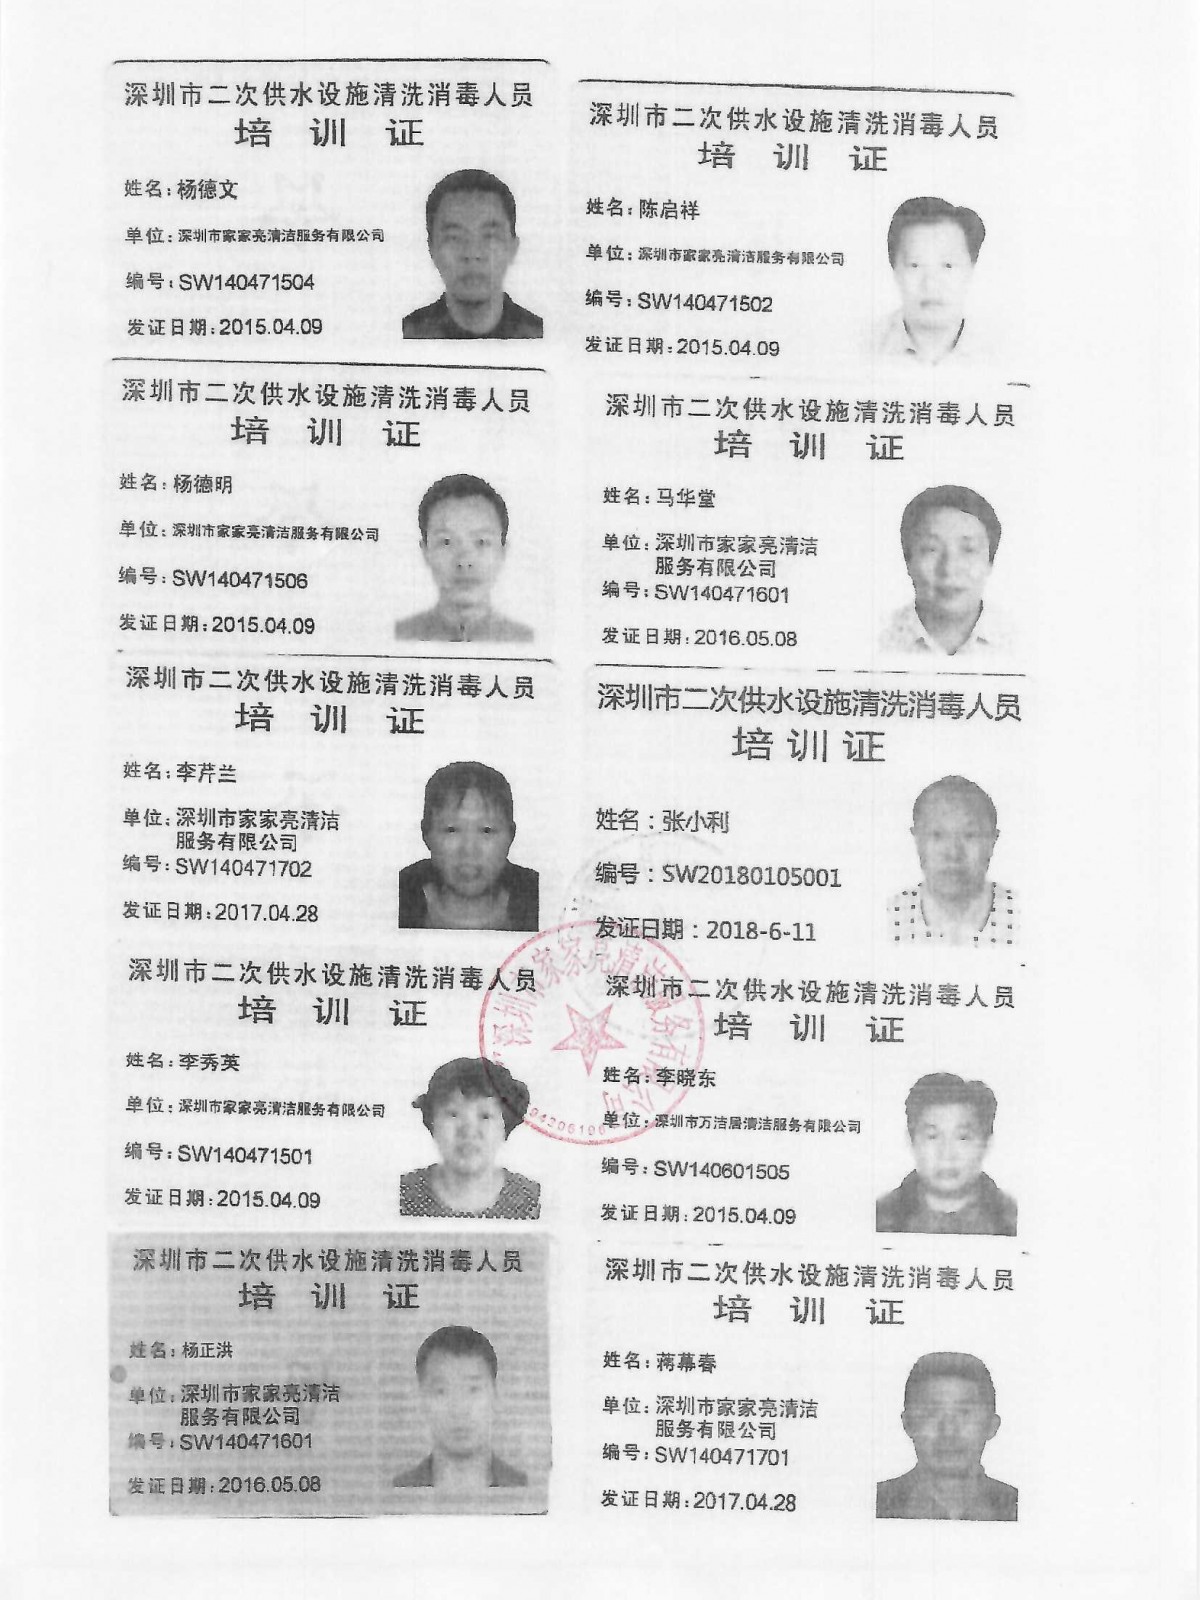 深圳市二次供水设施清洗消毒人员
培训证
姓名:杨德文
单位:深圳市家家亮清洁服务有限公司
编号:SW140471504
发证日期:2015.04.09
深圳市二次供水设施清洗消毒人员
培训证
姓名:陈启祥
单位:深圳市家家亮清洁服务有限公司
编号:SW140471502
发证日期:2015.04.09
深圳市二次供水设施清洗消毒人员
培训证
姓名:杨德明
单位:深圳市家家亮清洁服务有限公司
编号:SW140471506
发证日期:2015.04.09
深圳市二次供水设施清洗消毒人员
培训证
姓名:马华堂
单位:深圳市家家亮清洁
服务有限公司
编号:SW140471601
发证日期:2016.05.08
深圳市二次供水设施清洗消毒人员
培训证
姓名:李芹兰
单位:深圳市家家亮清洁
服务有限公司
编号:SW140471702
发证日期:2017.04.28
深圳市二次供水设施清洗消毒人员
培训证
姓名:张小利
编号:SW20180105001
发证日期:2018-6-11
深圳市二次供水设施清洗消毒人员
培训证
姓名:李秀英
单位:深圳市家家亮清洁服务有限公司
编号:SW140471501
发证日期:2015.04.09
深圳市家家亮清洁服务有限公司
深圳市二次供水设施清洗消毒人员
培训证
姓名:李晓东
单位:深圳市万洁居清洁服务有限公司
编号:SW140601505
发证日期:2015.04.09
深圳市二次供水设施清洗消毒人员
培训证
姓名:杨正洪
单位:深圳市家家亮清洁
服务有限公司
编号:SW140471601
发证日期:2016.05.08
深圳市二次供水设施清洗消毒人员
培训证
姓名:蒋幕春
单位:深圳市家家亮清洁
服务有限公司
编号:SW140471701
发证日期:2017.04.28